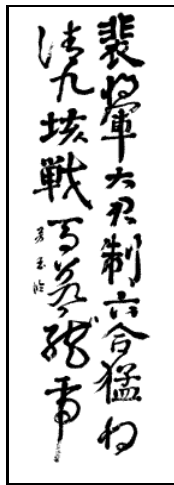 裴将軍大君制六合猛将
清九垓戦馬若龍虎